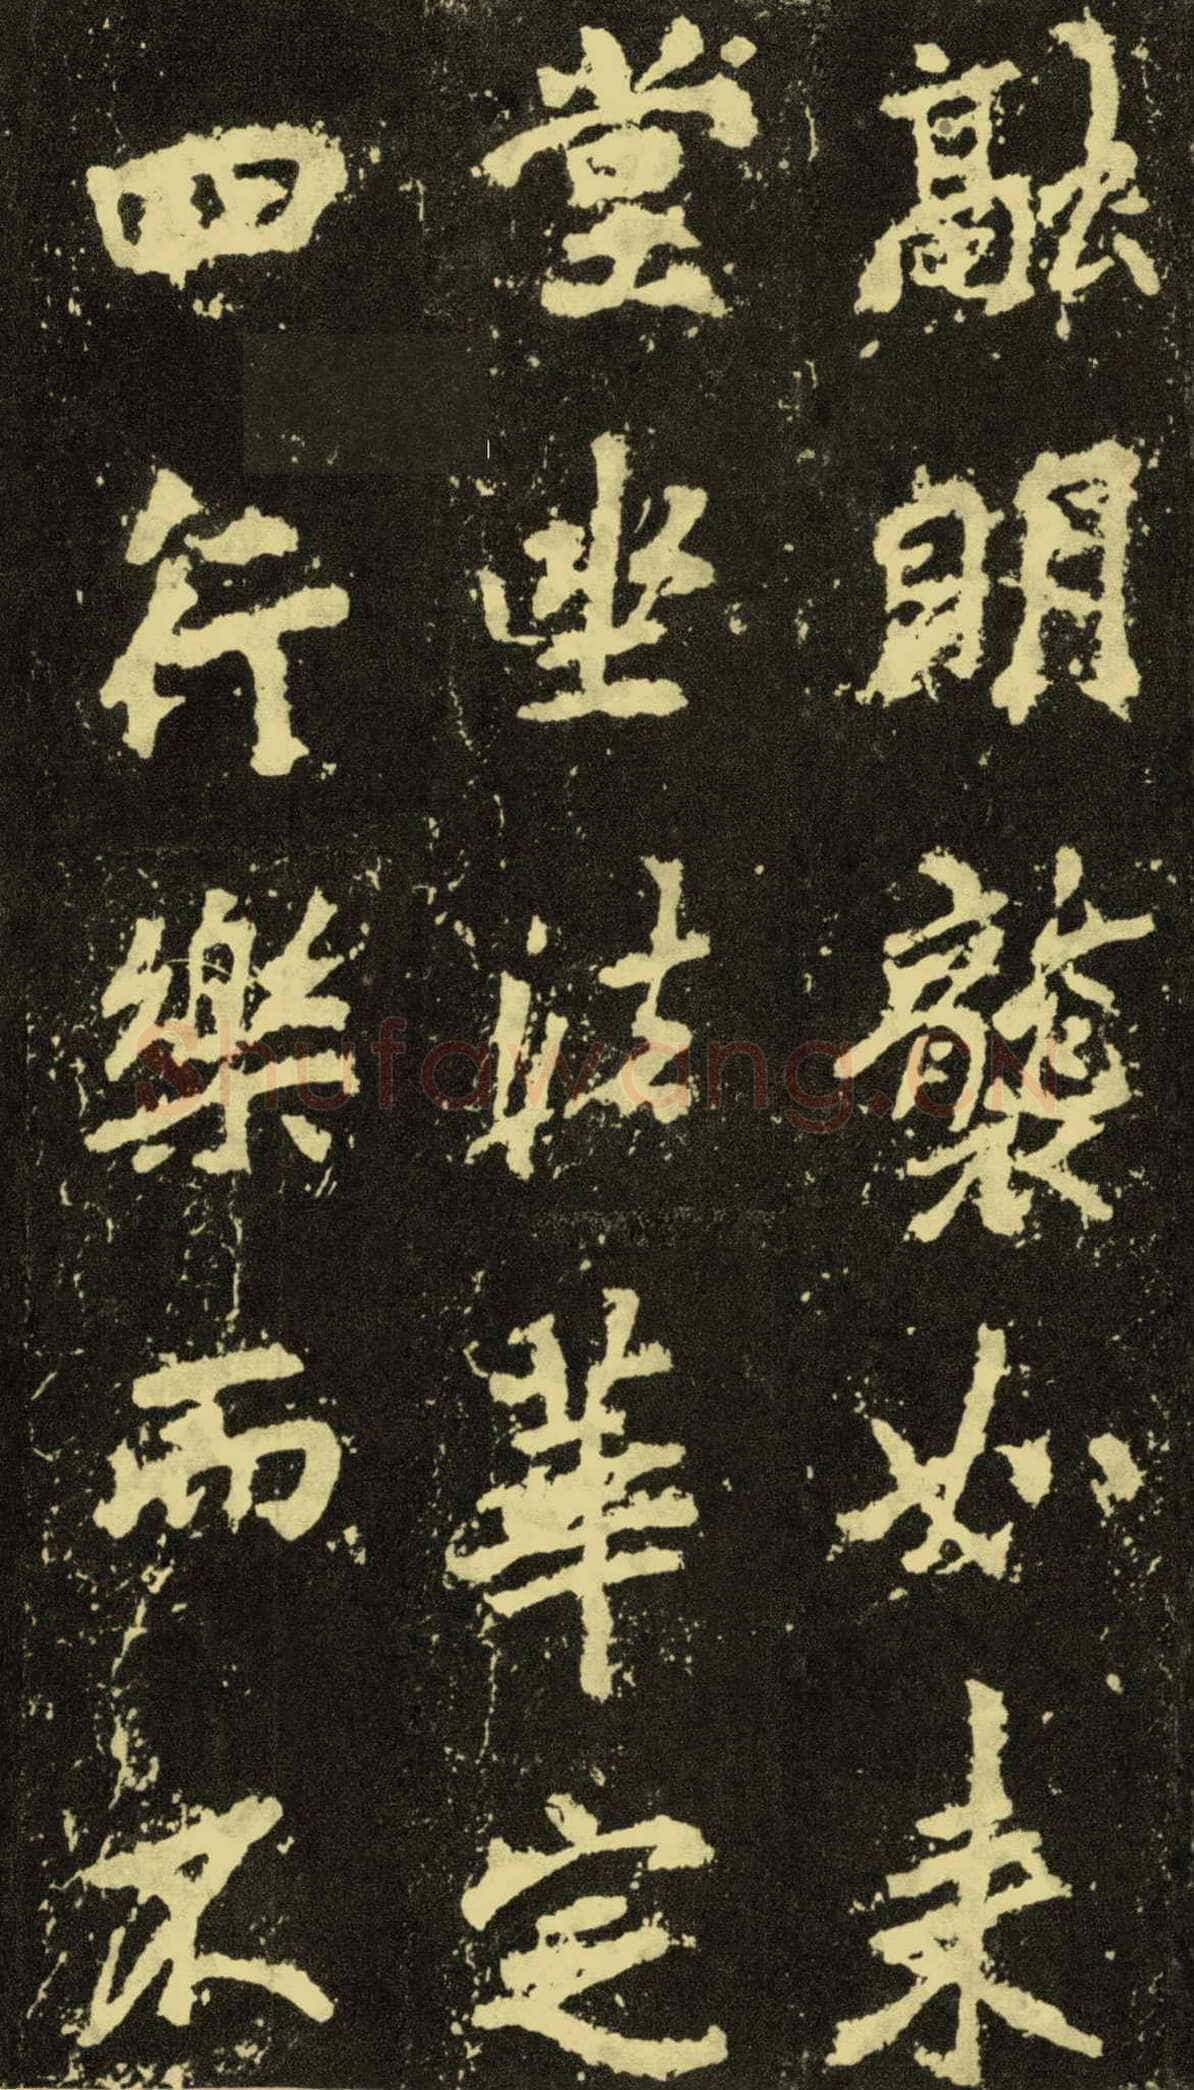 融明襲如來
堂坐法華定
四行樂而不
Shufawang.CN